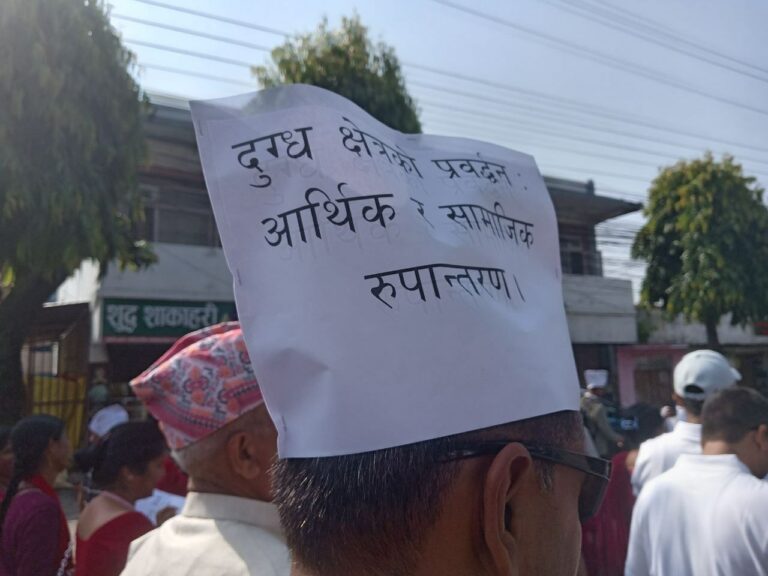 दुग्ध क्षेत्रको प्रवर्द्धन :
आर्थिक र सामाजिक
रुपान्तरण।
शुद्ध शाकाहारी